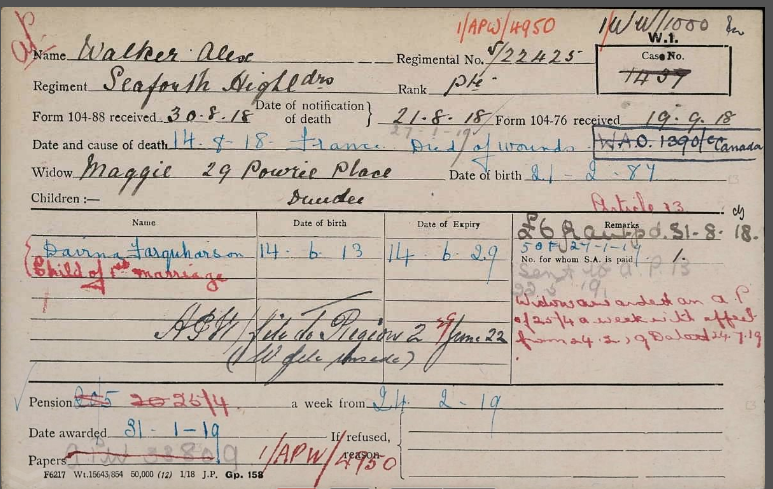 1/APW/4950 1/WW/1000
W.1.
Name Walker Alex Regimental No. S/22425 Case No. 1439
Regiment Seaforth Highldrs Rank Pte
Form 104-88 received 30-8-18 Date of notification of death } 21-8-18 Form 104-76 received 19-9-18
27-1-19
Date and cause of death 14-8-18 France Died of wounds W.A.O. 1390/ Canada
Widow Maggie 29 Powrie Place Date of birth 21-2-87
Children :— Dundee Article 13
Name Date of birth Date of Expiry Remarks
31-8-18.
Davina Farquharson 14-6-13 14-6-29
No. for whom S.A. is paid 1.
Child of 1st marriage Sent to A.P. 13
Widow awarded an A.P.
of 25/4 a week with effect
from 24.2.19 Dated 24.7.19
file to Region 2 June 22
(W file inside)
Pension 25/4 a week from 24-2-19
Date awarded 31-1-19 If refused,
Papers 1/APW/4950 reason
F6217 Wt.15643/854 50,000 (12) 1/18 J.P. Gp. 158